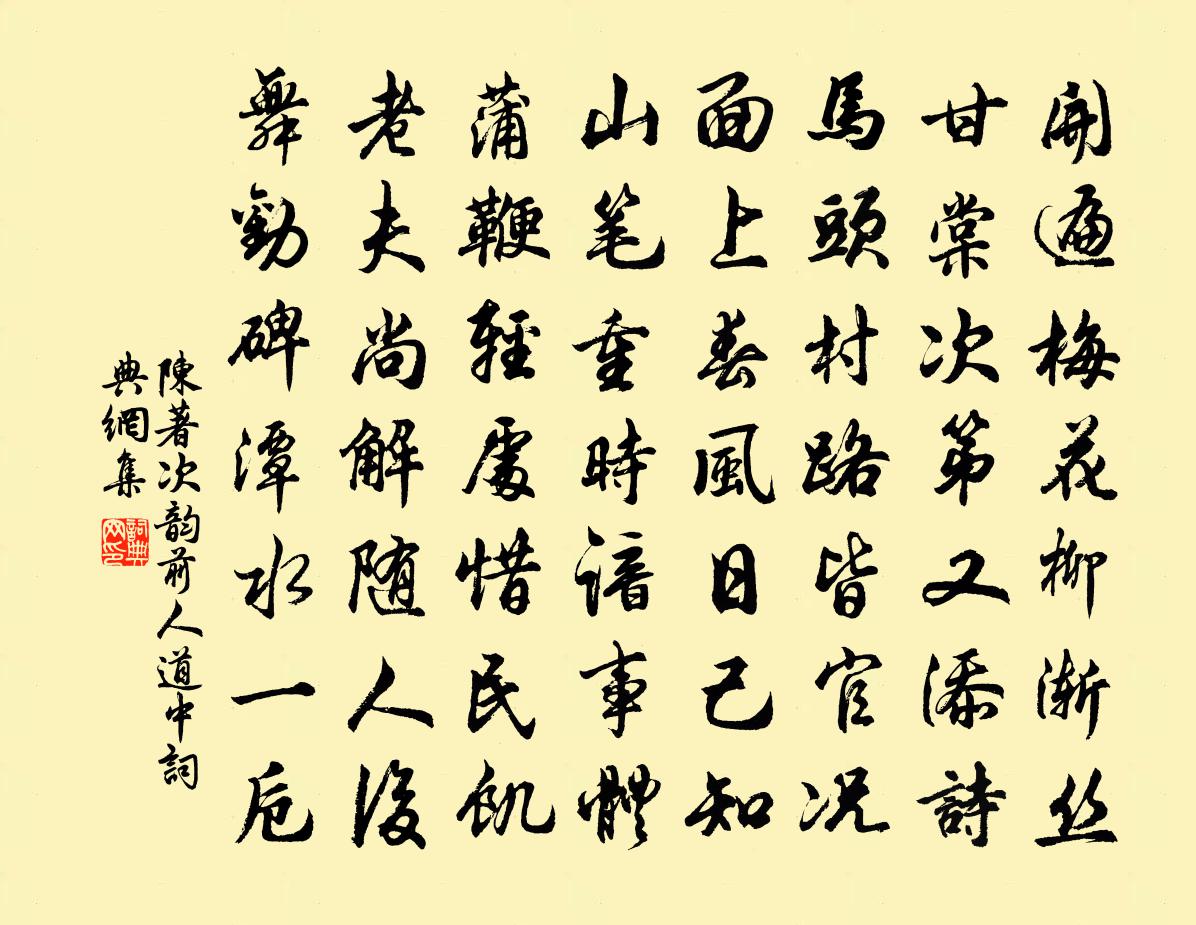 開遍梅花柳漸絲
甘棠次第又添詩
馬頭村路皆官況
面上春風日已知
山笔重時諳事體
蒲鞭輕處惜民飢
老夫尚解随人後
舞勸碑潭水一卮
陳著次韵前人道中詞
典網集
詞典网印